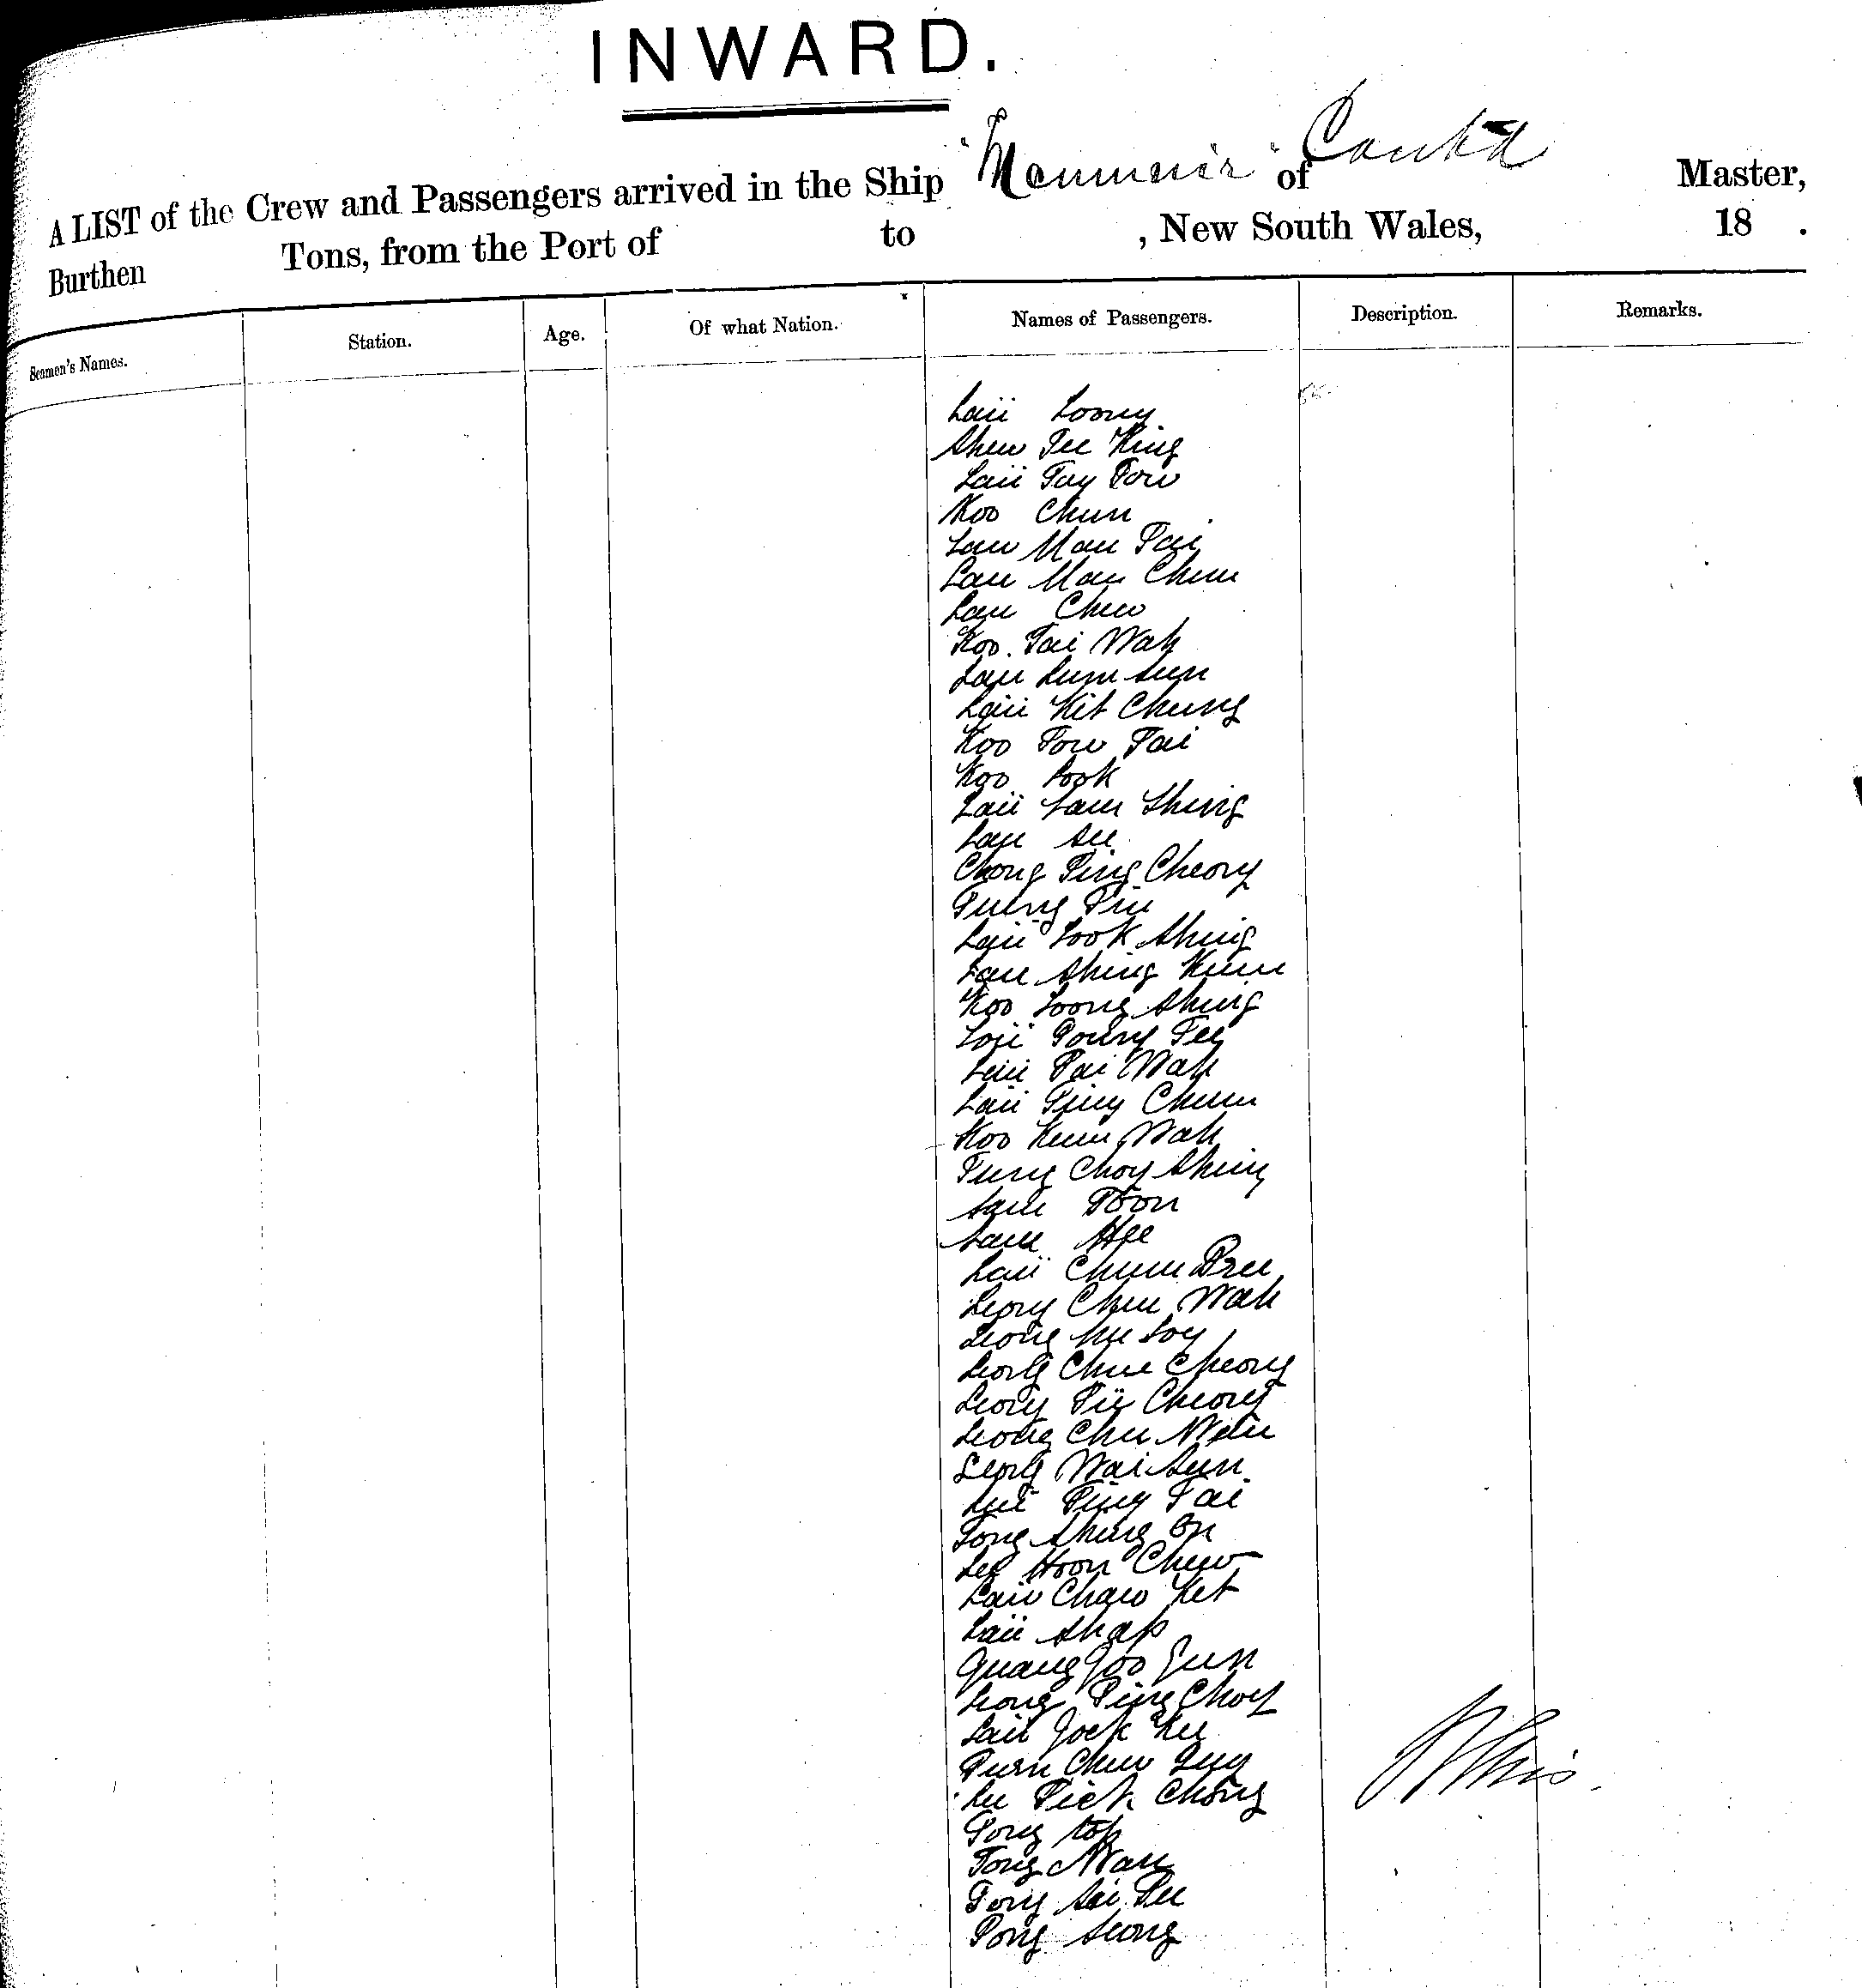 INWARD.
A LIST of the Crew and Passengers arrived in the Ship "Menmuir" of Contd Master,
Burthen Tons, from the Port of to , New South Wales, 18 .
Seamen's Names. Station. Age. Of what Nation. Names of Passengers. Description. Remarks.
Laii Loong
Shew Tee King
Laii Tay Fow
Koo Chun
Lau Man Tai
Lau Man Chun
Lau Chew
Koo Tai Wah
Lau Sum Sun
Laii Kit Chung
Koo Fow Tai
Koo Look
Laii Lam Shing
Lau See
Chong Ping Cheong
Tung
Laii Look Shing
Lau Shing Kum
Koo Loong Shing
Tee
Laii Tai Wah
Laii Ping Chum
Koo Kum Wah
Tung Choy Shing
Sam Toon
Sam Hee
Laii Chum
Leong Chee Wah
Leong Soy
Leong Chue Cheong
Leong Cheong
Leong Chu
Leong Wai Sun
Ping Tai
Tong Shing On
Lee Hoon Chew
Laii Chaw Ket
Laii Shap
Quang Goo Gun
Leong Ping Choy
Laii Gock Kee
Chew
Lee Pick Chong
Tong
Tong Wan
Tong Sai
Tong Leong